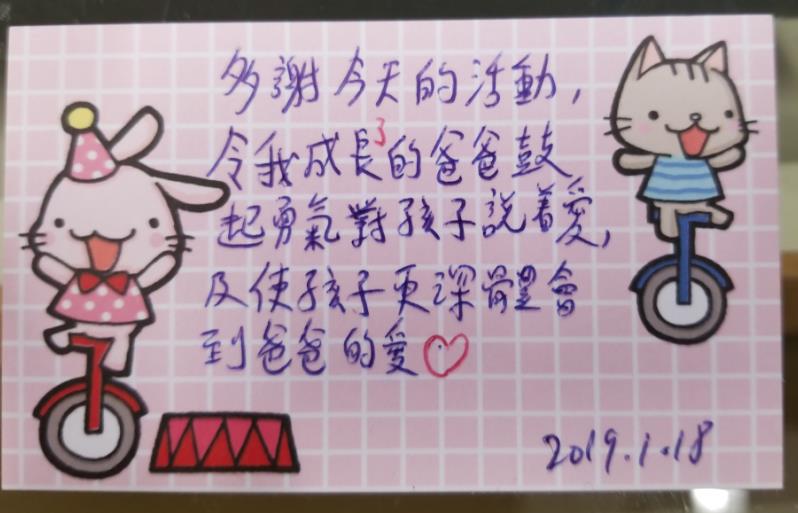 多謝今天的活動,
令我成長了的爸爸鼓
起勇氣對孩子說着愛,
及使孩子更深體會
到爸爸的愛♡
2019.1.18